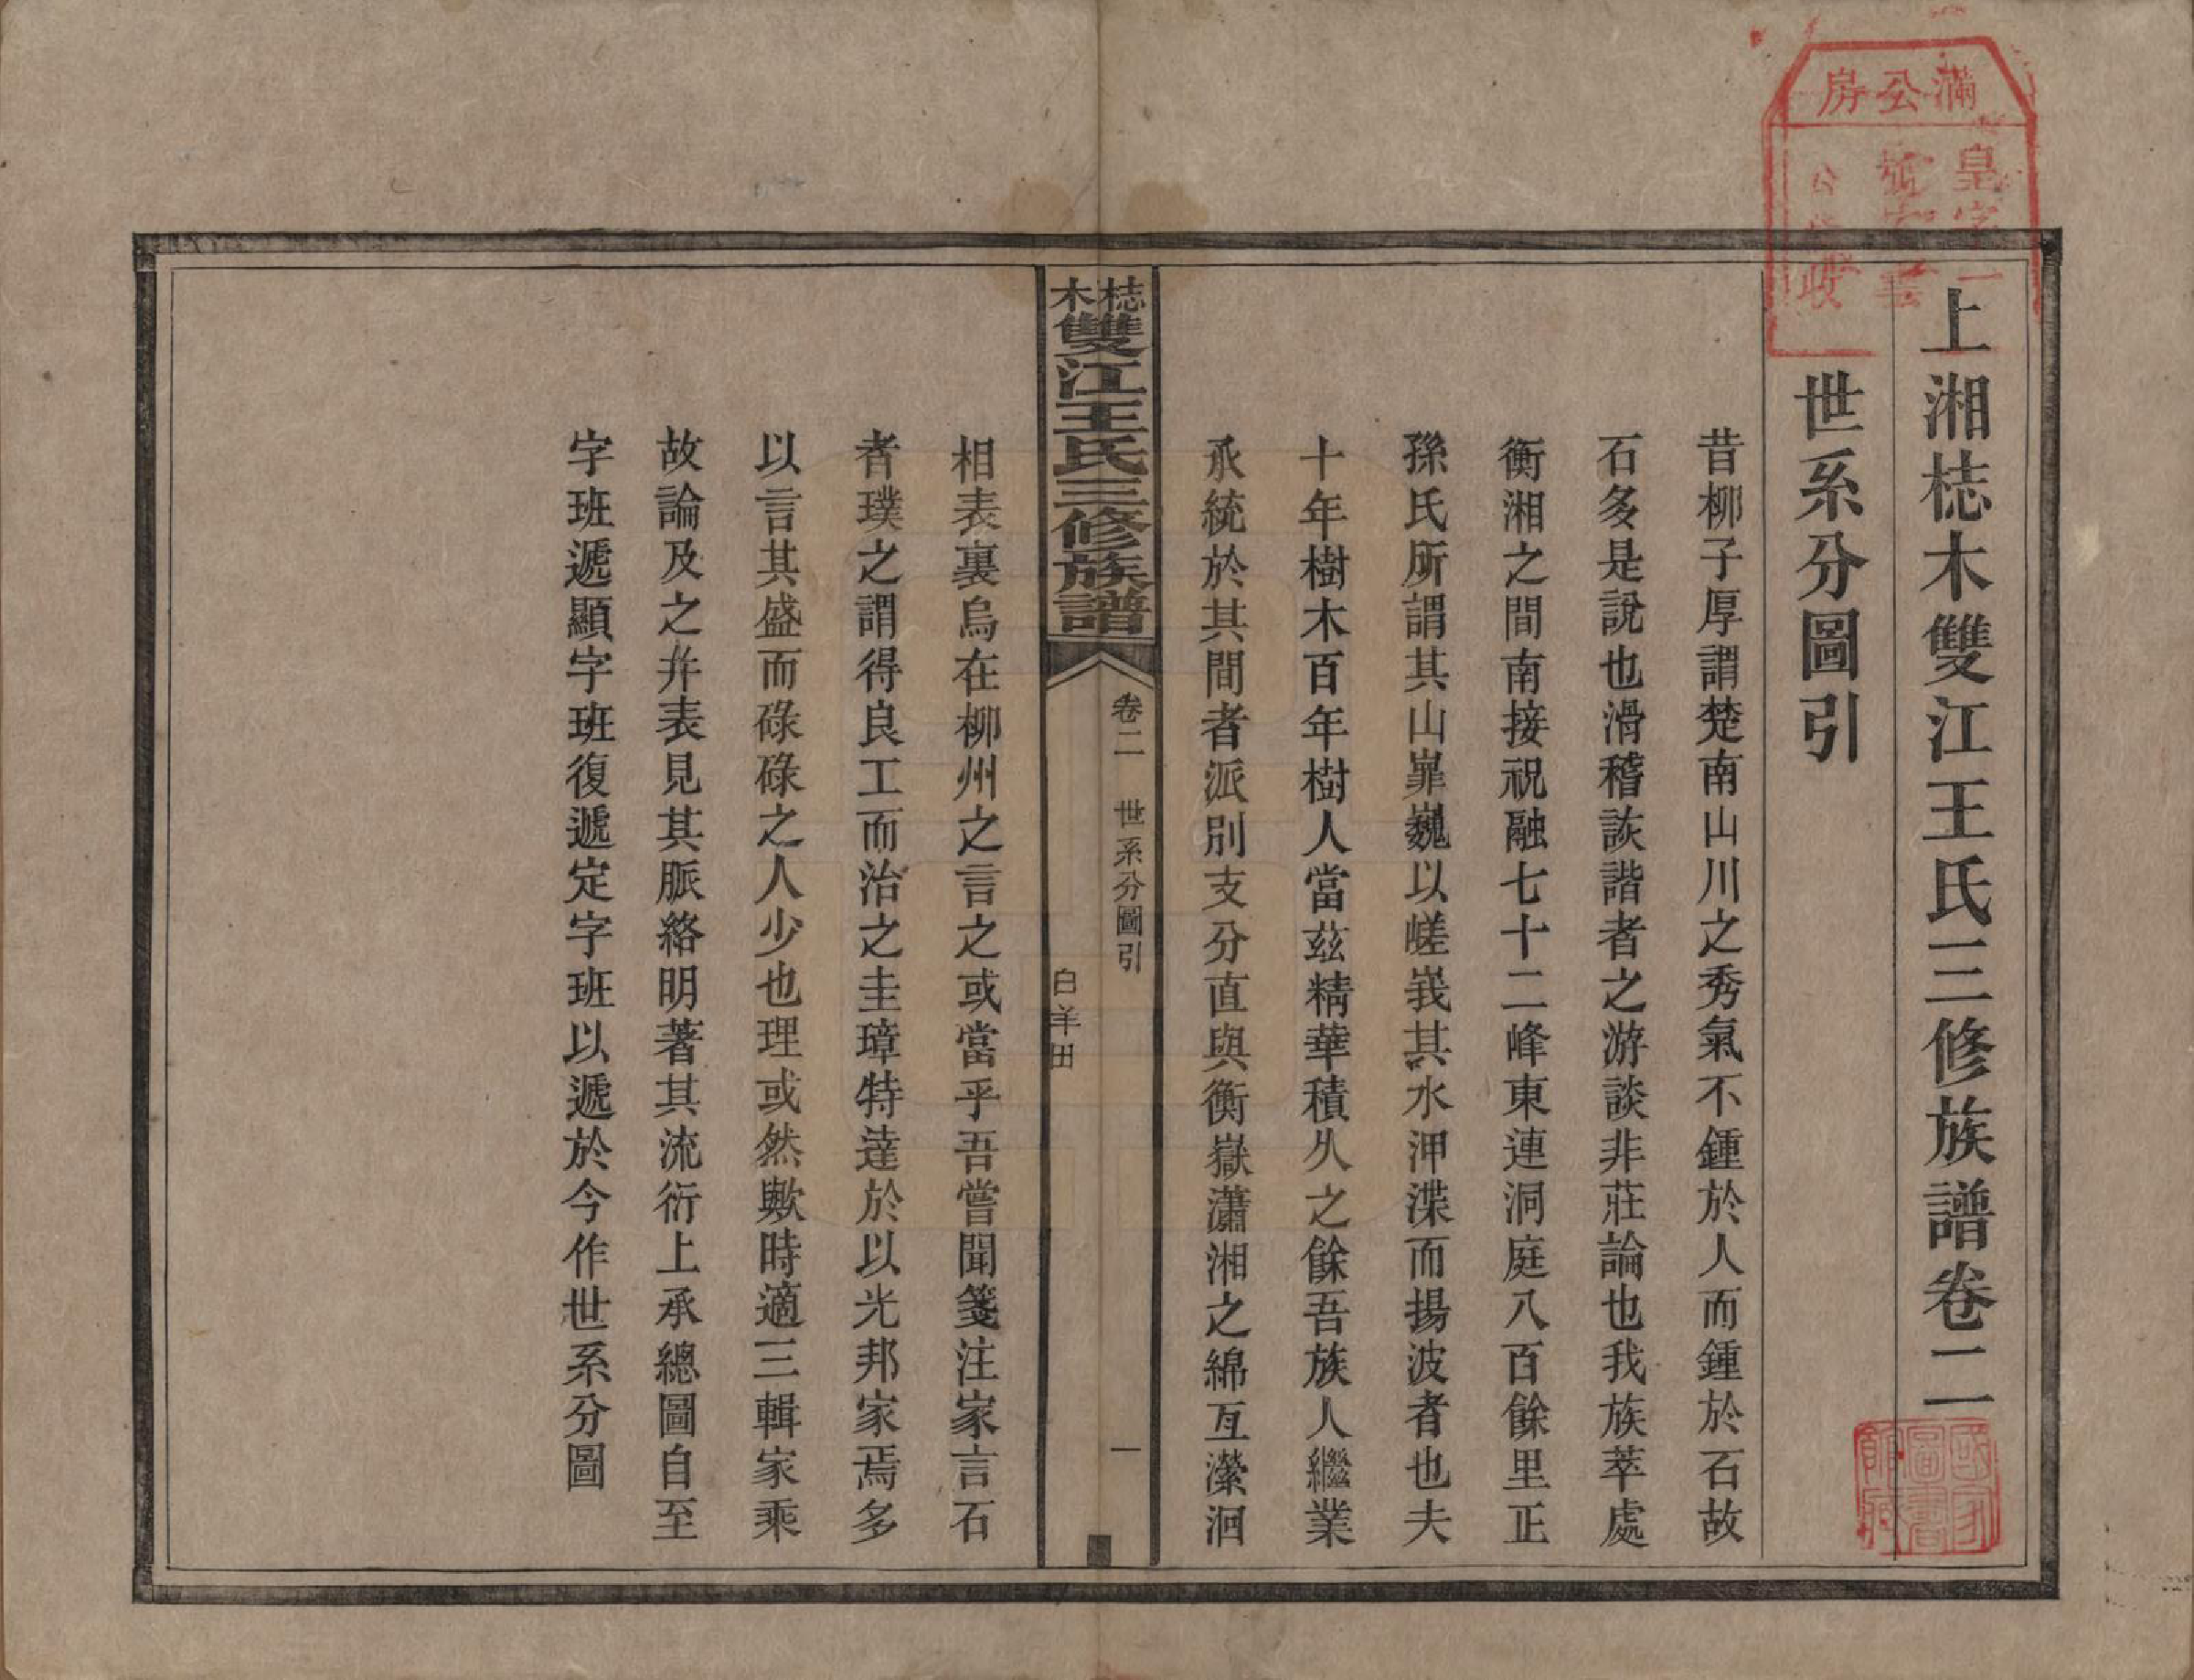 上湘梽木雙江王氏三修族譜卷二
世系分圖引
昔柳子厚謂楚南山川之秀氣不鍾於人而鍾於石故
石多是說也滑稽詼諧者之游談非莊論也我族萃處
衡湘之間南接祝融七十二峰東連洞庭八百餘里正
孫氏所謂其山嶵巍以嵯峩其水泙渫而揚波者也夫
十年樹木百年樹人當茲精華積久之餘吾族人繼業
承統於其間者派別支分直與衡嶽瀟湘之綿亙瀠洄
梽木雙江王氏三修族譜
卷二 世系分圖引 一
白羊田
相表裏烏在柳州之言之或當乎吾嘗聞箋注家言石
者璞之謂得良工而治之圭璋特達於以光邦家焉多
以言其盛而碌碌之人少也理或然歟時適三輯家乘
故論及之幷表見其脈絡明著其流衍上承總圖自至
字班遞顯字班復遞定字班以遞於今作世系分圖
滿公房
皇字一
號
公
收
國家圖書館藏